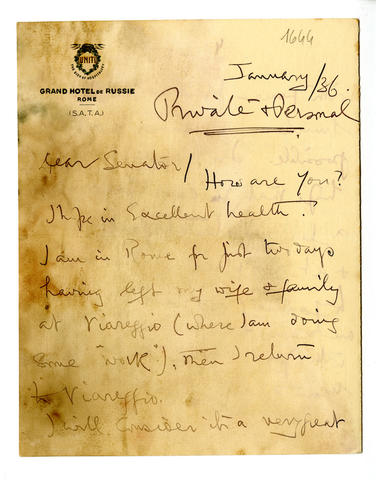 1644
UNITI
GRAND HOTEL DE RUSSIE
ROME
(S.A.T.A.)
January/36.
Private & Personal
Dear Senator/
How are you?
I hope in Excellent health.
I am in Rome for just two days
having left my wife & family
at Viareggio (where I am doing
some "work"), then I return
to Viareggio.
I will consider it a very great